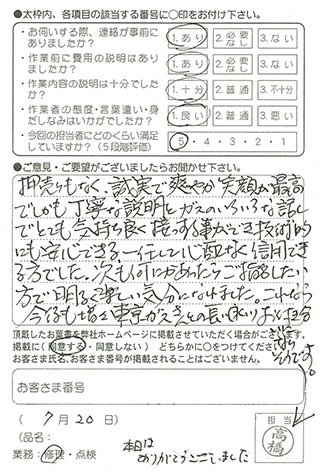 ●太枠内、各項目の該当する番号に○印をお付け下さい。
・お伺いする際、連絡が事前にありましたか？ 1.あり 2.必要なし 3.ない
・作業前に費用の説明はありましたか？ 1.あり 2.必要なし 3.ない
・作業内容の説明は十分でしたか？ 1.十分 2.普通 3.不十分
・作業者の態度・言葉遣い・身だしなみはいかがでしたか？ 1.良い 2.普通 3.悪い
・今回の担当者にどのくらい満足していますか？（５段階評価） 5・4・3・2・1
●ご意見・ご要望がございましたらお聞かせ下さい。
押売りもなく、誠実で爽やか笑顔が最高
でしかも丁寧な説明とガスのいろいろな話し
でとても気持ち良く接する事ができ技術的
にも安心できる 心配なく信用でき
る方でした。次も何かあったらご指名したい
方で明るく楽しい気分になりました。これなら
今後も 東京ガスさんとの長い
頂戴したお葉書を弊社ホームページに掲載させていただく場合がございます。
掲載に（同意する・同意しない） どちらかに○をつけてください。
お客さま氏名、お客さま番号が掲載されることはございません。
お客さま番号
（ 7月20日 ）
（品名：
業務：修理・点検
本日は
ありがとうございました
担当
高橋